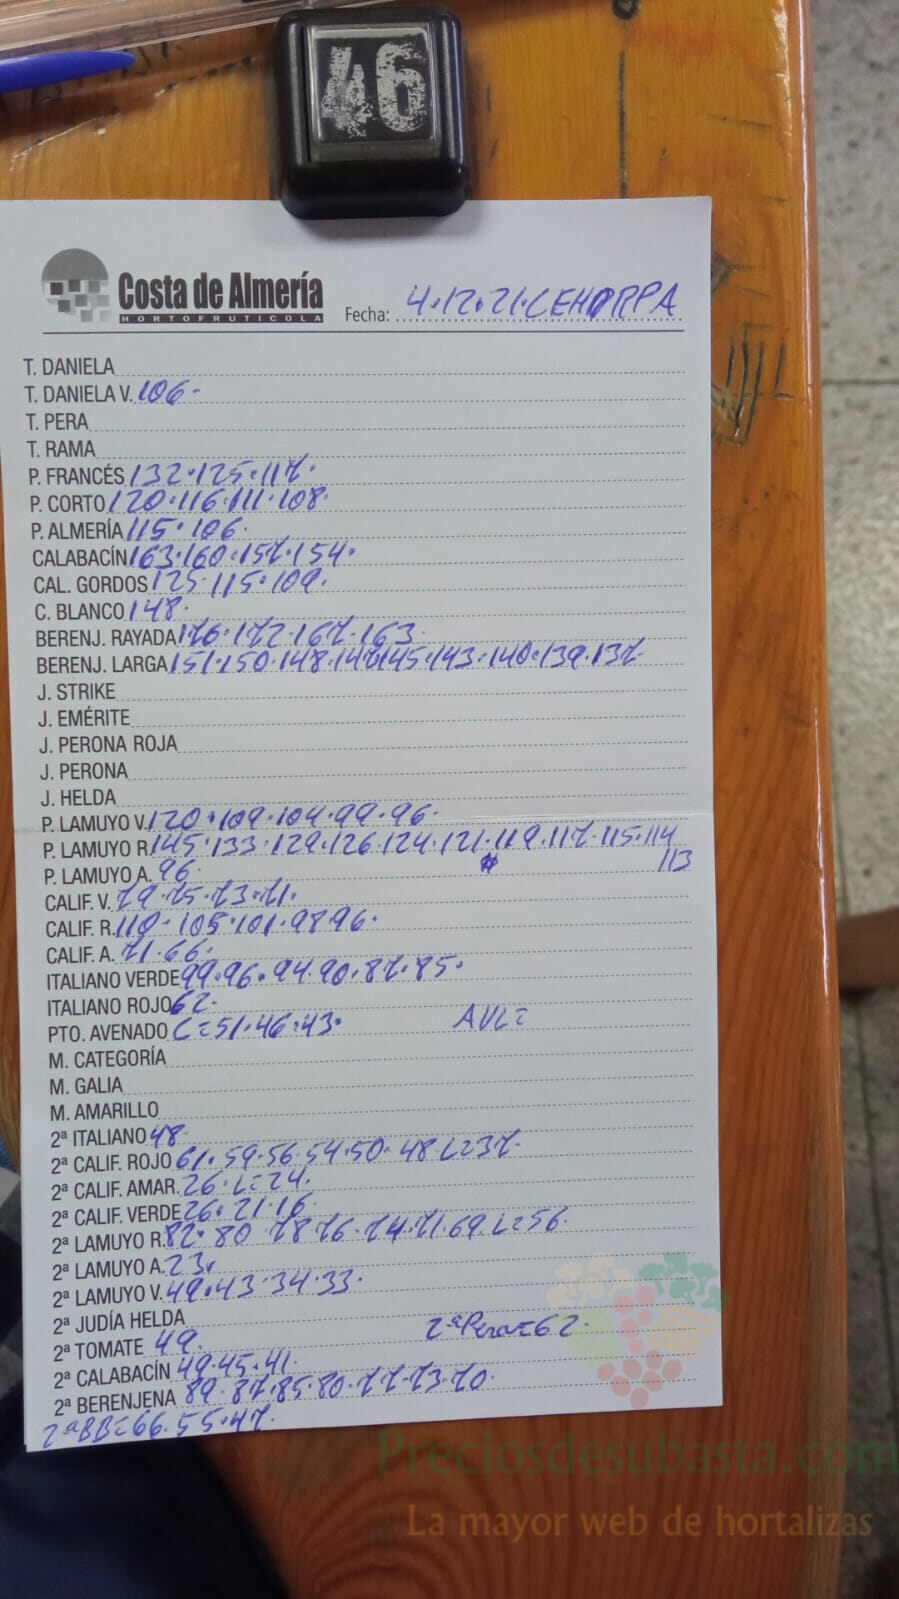 46
Costa de Almería
HORTOFRUTICOLA
Fecha: 4.12.21.CEHORPA
T. DANIELA
T. DANIELA V. 106.
T. PERA
T. RAMA
P. FRANCÉS 132.125.117.
P. CORTO 120.116.111.108
P. ALMERÍA 115.106.
CALABACÍN 163.160.157.154.
CAL. GORDOS 125.115.109.
C. BLANCO 148.
BERENJ. RAYADA 176.172.167.163.
BERENJ. LARGA 151.150.148.147.145.143.140.139.137.
J. STRIKE
J. EMÉRITE
J. PERONA ROJA
J. PERONA
J. HELDA
P. LAMUYO V. 120.109.104.99.96.
P. LAMUYO R. 145.133.129.126.124.121.119.117.115.114
113
P. LAMUYO A. 96.
CALIF. V. 79.75.73.71.
CALIF. R. 110.105.101.98.96.
CALIF. A. 71.66.
ITALIANO VERDE 99.96.94.90.87.85.
ITALIANO ROJO 62.
PTO. AVENADO C=51.46.43. AVL=
M. CATEGORÍA
M. GALIA
M. AMARILLO
2ª ITALIANO 48.
2ª CALIF. ROJO 61.59.56.54.50.48 L=37.
2ª CALIF. AMAR. 26.L=24.
2ª CALIF. VERDE 26.21.16
2ª LAMUYO R. 82.80 78.76.74.71.69.L=56.
2ª LAMUYO A. 23.
2ª LAMUYO V. 49.43.34.33.
2ª JUDÍA HELDA
2ª TOMATE 49. 2ªPera=62.
2ª CALABACÍN 49.45.41.
2ª BERENJENA 89.87.85.80.77.73.70.
2ªBB=66.55.47.
Preciosdesubasta.com
La mayor web de hortalizas